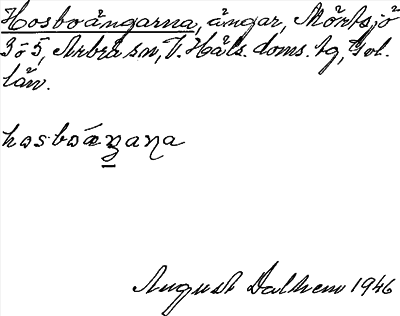 Hosboångarna, ångar, Mörtsjö
3 o 5, Arbrå sn, V. Häls. doms. tg, Gvl.
län.
hosboáŋana
August Dalhem 1946